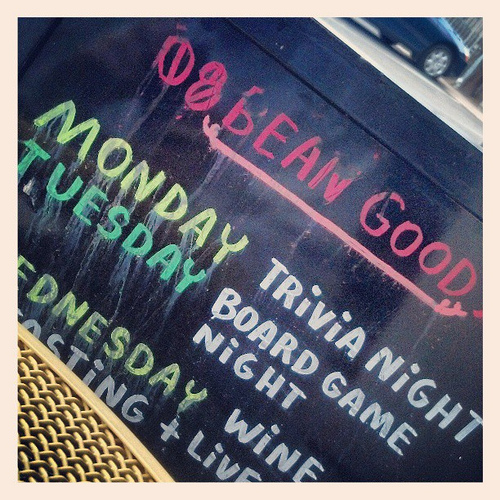 BEAN GOOD
MONDAY TRiViA NiGHT
TUESDAY BOARD GAME
NiGHT
EDNESDAY WiNE
ASTiNG + LiVE